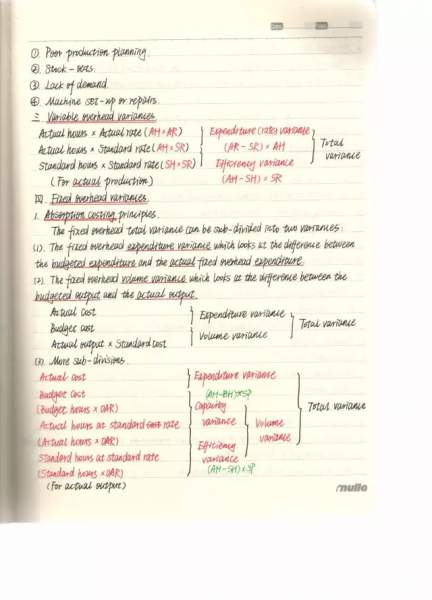 ① Poor production planning.
② Stock-outs.
③ Lack of demand.
④ Machine set-up or repairs.
三. Variable overhead variances
Actual hours × Actual rate (AH×AR) Expenditure (rate) variance
Actual hours × Standard rate (AH×SR) (AR-SR) × AH Total variance
Standard hours × Standard rate (SH×SR) Efficiency variance
(For actual production) (AH-SH) × SR
IV. Fixed overhead variances.
1. Absorption costing principles.
The fixed overhead total variance can be sub-divided into two variances:
(1). The fixed overhead expenditure variance which looks at the difference between
the budgeted expenditure and the actual fixed overhead expenditure.
(2). The fixed overhead volume variance which looks at the difference between the
budgeted output and the actual output.
Actual cost Expenditure variance
Budget cost Volume variance Total variance
Actual output × Standard cost
(3). More sub-divisions.
Actual cost Expenditure variance
Budget cost (AH-BH)×SP
(Budget hours × OAR) Capacity Total variance
Actual hours at standard rate variance Volume
(Actual hours × OAR) Efficiency variance
Standard hours at standard rate variance
(Standard hours × OAR) (AH-SH)×SP
(For actual output)